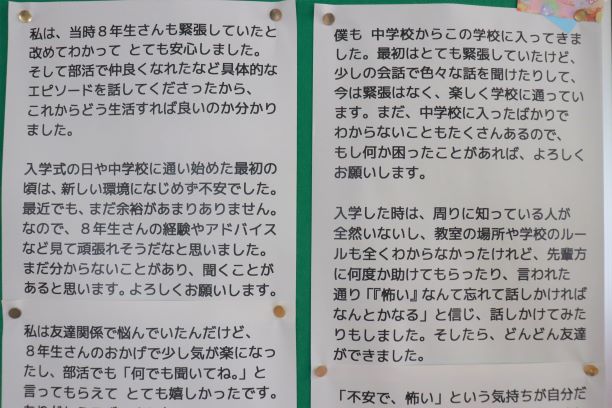 私は、当時８年生さんも緊張していたと
改めてわかって とても安心しました。
そして部活で仲良くなれたなど具体的な
エピソードを話してくださったから、
これからどう生活すれば良いのか分かり
ました。
入学式の日や中学校に通い始めた最初の
頃は、新しい環境になじめず不安でした。
最近でも、まだ余裕があまりありません。
なので、８年生さんの経験やアドバイス
など見て頑張れそうだなと思いました。
まだ分からないことがあり、聞くことが
あると思います。よろしくお願いします。
私は友達関係で悩んでいたんだけど、
８年生さんのおかげで少し気が楽になっ
たし、部活でも「何でも聞いてね。」と
言ってもらえて とても嬉しかったです。
僕も 中学校からこの学校に入ってきま
した。最初はとても緊張していたけど、
少しの会話で色々な話を聞けたりして、
今は緊張はなく、楽しく学校に通ってい
ます。まだ、中学校に入ったばかりで
わからないこともたくさんあるので、
もし何か困ったことがあれば、よろしく
お願いします。
入学した時は、周りに知っている人が
全然いないし、教室の場所や学校のルー
ルも全くわからなかったけれど、先輩方
に何度か助けてもらったり、言われた
通り「『怖い』なんて忘れて話しかければ
なんとかなる」と信じ、話しかけてみた
りもしました。そしたら、どんどん友達
ができました。
「不安で、怖い」という気持ちが自分だ